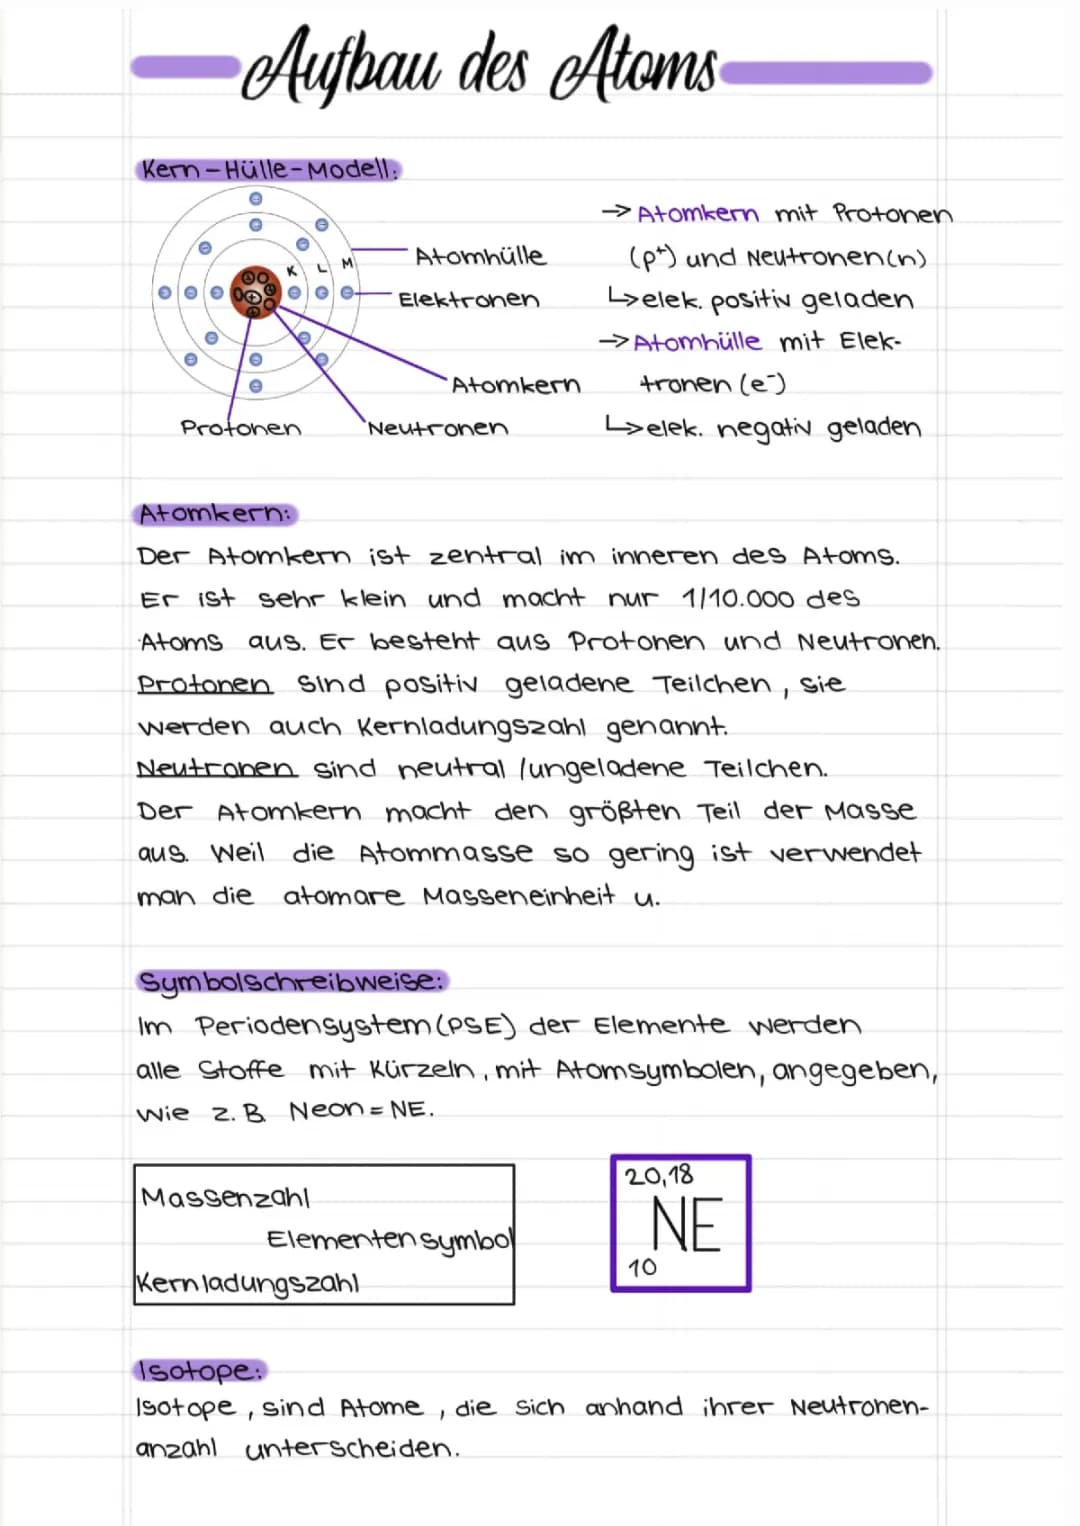 Aufbau des Atoms
Kern-Hülle-Modell:
K L M
Atomhülle
Elektronen
Atomkern
Neutronen
Protonen
→ Atomkern mit Protonen
(p⁺) und Neutronen(n)
↳elek. positiv geladen
→ Atomhülle mit Elek-
tronen (e⁻)
↳elek. negativ geladen
Atomkern:
Der Atomkern ist zentral im inneren des Atoms.
Er ist sehr klein und macht nur 1/10.000 des
Atoms aus. Er besteht aus Protonen und Neutronen.
Protonen sind positiv geladene Teilchen, sie
werden auch Kernladungszahl genannt.
Neutronen sind neutral /ungeladene Teilchen.
Der Atomkern macht den größten Teil der Masse
aus. Weil die Atommasse so gering ist verwendet
man die atomare Masseneinheit u.
Symbolschreibweise:
Im Periodensystem (PSE) der Elemente werden
alle Stoffe mit Kürzeln, mit Atomsymbolen, angegeben,
wie z.B. Neon = NE.
Massenzahl
Elementensymbol
Kernladungszahl
20,18
NE
10
Isotope:
Isotope, sind Atome, die sich anhand ihrer Neutronen-
anzahl unterscheiden.